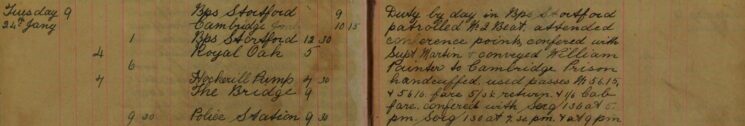 Tuesday 9 Bps Stortford 9
24th Jany Cambridge 10 15
1 Bps Stortford 12 30
4 Royal Oak 5
6
7 Hockerill Pump 7 30
The Bridge 9
9 30 Police Station 9 30
Duty by day in Bps Stortford
patrolled No 2 Beat. attended
conference points, confered with
Supt Martin & conveyed William
Painter to Cambridge Prison
handcuffed, used passes No 5615,
& 5616. fare 5/5½ return. & 1/6 Cab
fare. confered with Serg 130 at 5
pm. Serg 130 at 7.30 pm. & at 9 pm